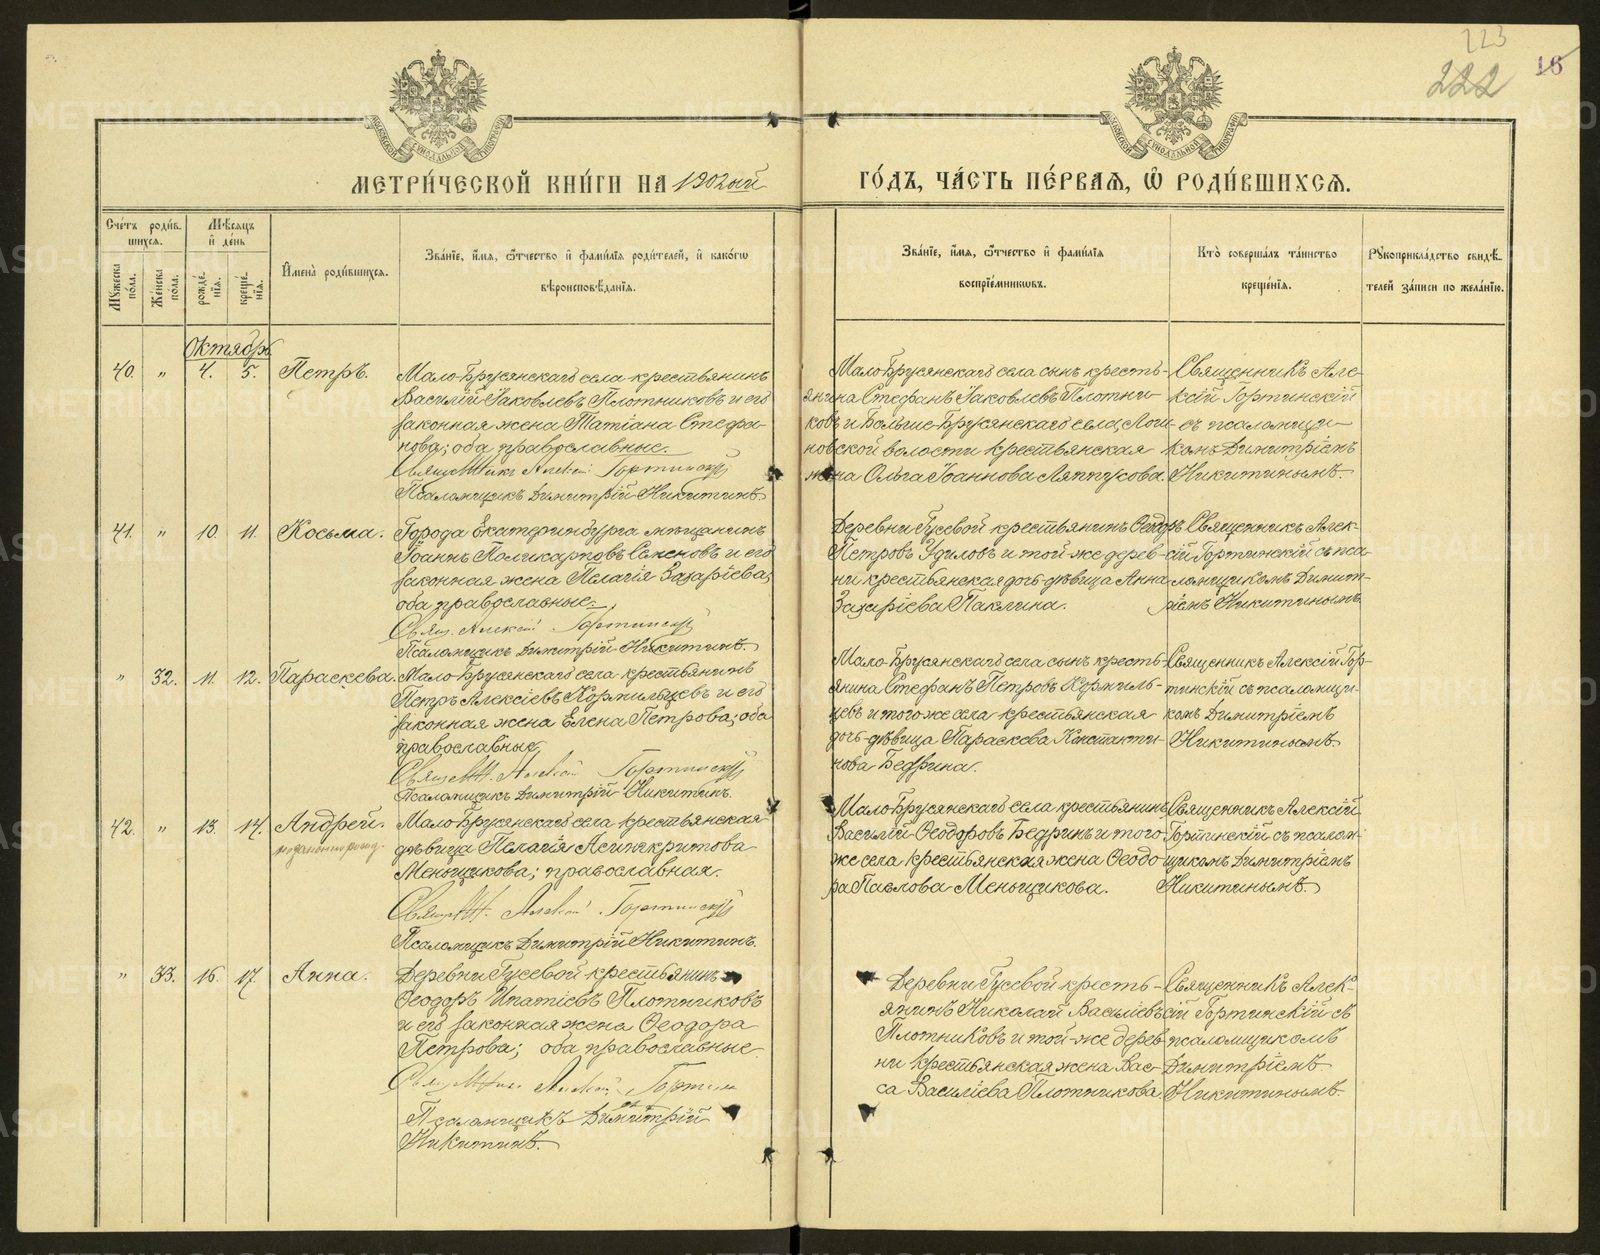 223
222
16
МЕТРИ́ЧЕСКОЙ КНИ́ГИ НА 1902ый
ГО́ДЪ, ЧА́СТЬ ПЕ́РВАѦ, Ѿ РОДИ́ВШИХСѦ.
Сче́тъ роди́в-
шихсѧ.
Мѣ́сѧцъ
и҆ де́нь
Мꙋжеска по́ла.
Же́нска по́ла.
рожде́-нїѧ.
креще́-нїѧ.
И҆мена̀ роди́вшихсѧ.
Зва́нїе, и҆́мѧ, ѻ҆́тчество и҆ фами́лїѧ роди́телей, и҆ како́гѡ
вѣроисповѣ́данїѧ.
Зва́нїе, и҆́мѧ, ѻ҆́тчество и҆ фами́лїѧ
воспрїе́мникѡвъ.
Кто̀ соверша́лъ та́инство
креще́нїѧ.
Рꙋкоприкла́дство свидѣ́-
телей за́писи по жела́нїю.
Октябрь
40. " 4. 5. Петръ.
Мало-Брусянскаго села крестьянинъ
Василій Іаковлевъ Плотниковъ и его
законная жена Татіана Стефа-
нова; оба православные.
Священникъ Алексій Гортинскій
Псаломщикъ Димитрій Никитинъ.
Мало-Брусянскаго села сынъ кресть-
янина Стефанъ Іаковлевъ Плотни-
ковъ и Больше-Брусянскаго села, Логи-
новской волости крестьянская
жена Ольга Іоаннова Ляппусова.
Священникъ Але-
ксій Гортинскій
съ псаломщи-
комъ Димитріемъ
Никитинымъ.
41. " 10. 11. Косьма.
Города Екатеринбурга мѣщанинъ
Іоаннъ Поликарповъ Семеновъ и его
законная жена Пелагія Захаріева;
оба православные.
Свящ. Алексій Гортинскій
Псаломщикъ Димитрій Никитинъ.
Деревни Гусевой крестьянинъ Ѳеодоръ
Петровъ Удиловъ и той-же дерев-
ни крестьянская дочь-дѣвица Анна
Захаріева Паклина.
Священникъ Алек-
сій Гортинскій съ пса-
ломщикомъ Димит-
ріемъ Никитинымъ.
" 32. 11. 12. Параскева.
Мало-Брусянскаго села крестьянинъ
Петръ Алексіевъ Кормильцевъ и его
законная жена Елена Петрова; оба
православные.
Священ. Алексій Гортинскій
Псаломщикъ Димитрій Никитинъ.
Мало-Брусянскаго села сынъ кресть-
янина Стефанъ Петровъ Кормиль-
цевъ и того же села крестьянская
дочь-дѣвица Параскева Константи-
нова Бедрина.
Священникъ Алексій Гор-
тинскій съ псаломщи-
комъ Димитріемъ
Никитинымъ.
42. " 13. 14. Андрей.
незаконнорожд.
Мало-Брусянскаго села крестьянская
дѣвица Пелагія Асинкритова
Меньщикова; православная.
Священ. Алексій Гортинскій
Псаломщикъ Димитрій Никитинъ.
Мало-Брусянскаго села крестьянинъ
Василій Ѳеодоровъ Бедринъ и того-
же села крестьянская жена Ѳеодо-
ра Павлова Меньщикова.
Священникъ Алексій
Гортинскій съ псалом-
щикомъ Димитріемъ
Никитинымъ.
" 33. 16. 17. Анна.
Деревни Гусевой крестьянинъ
Ѳеодоръ Ипатіевъ Плотниковъ
и его законная жена Ѳеодора
Петрова; оба православные.
Священникъ Алексій Гортин
Псаломщикъ Димитрій
Никитинъ.
Деревни Гусевой кресть-
янинъ Николай Василіевъ
Плотниковъ и той-же дерев-
ни крестьянская жена Вас-
са Василіева Плотникова
Священникъ Алек-
сій Гортинскій съ
псаломщикомъ
Димитріемъ
Никитинымъ.